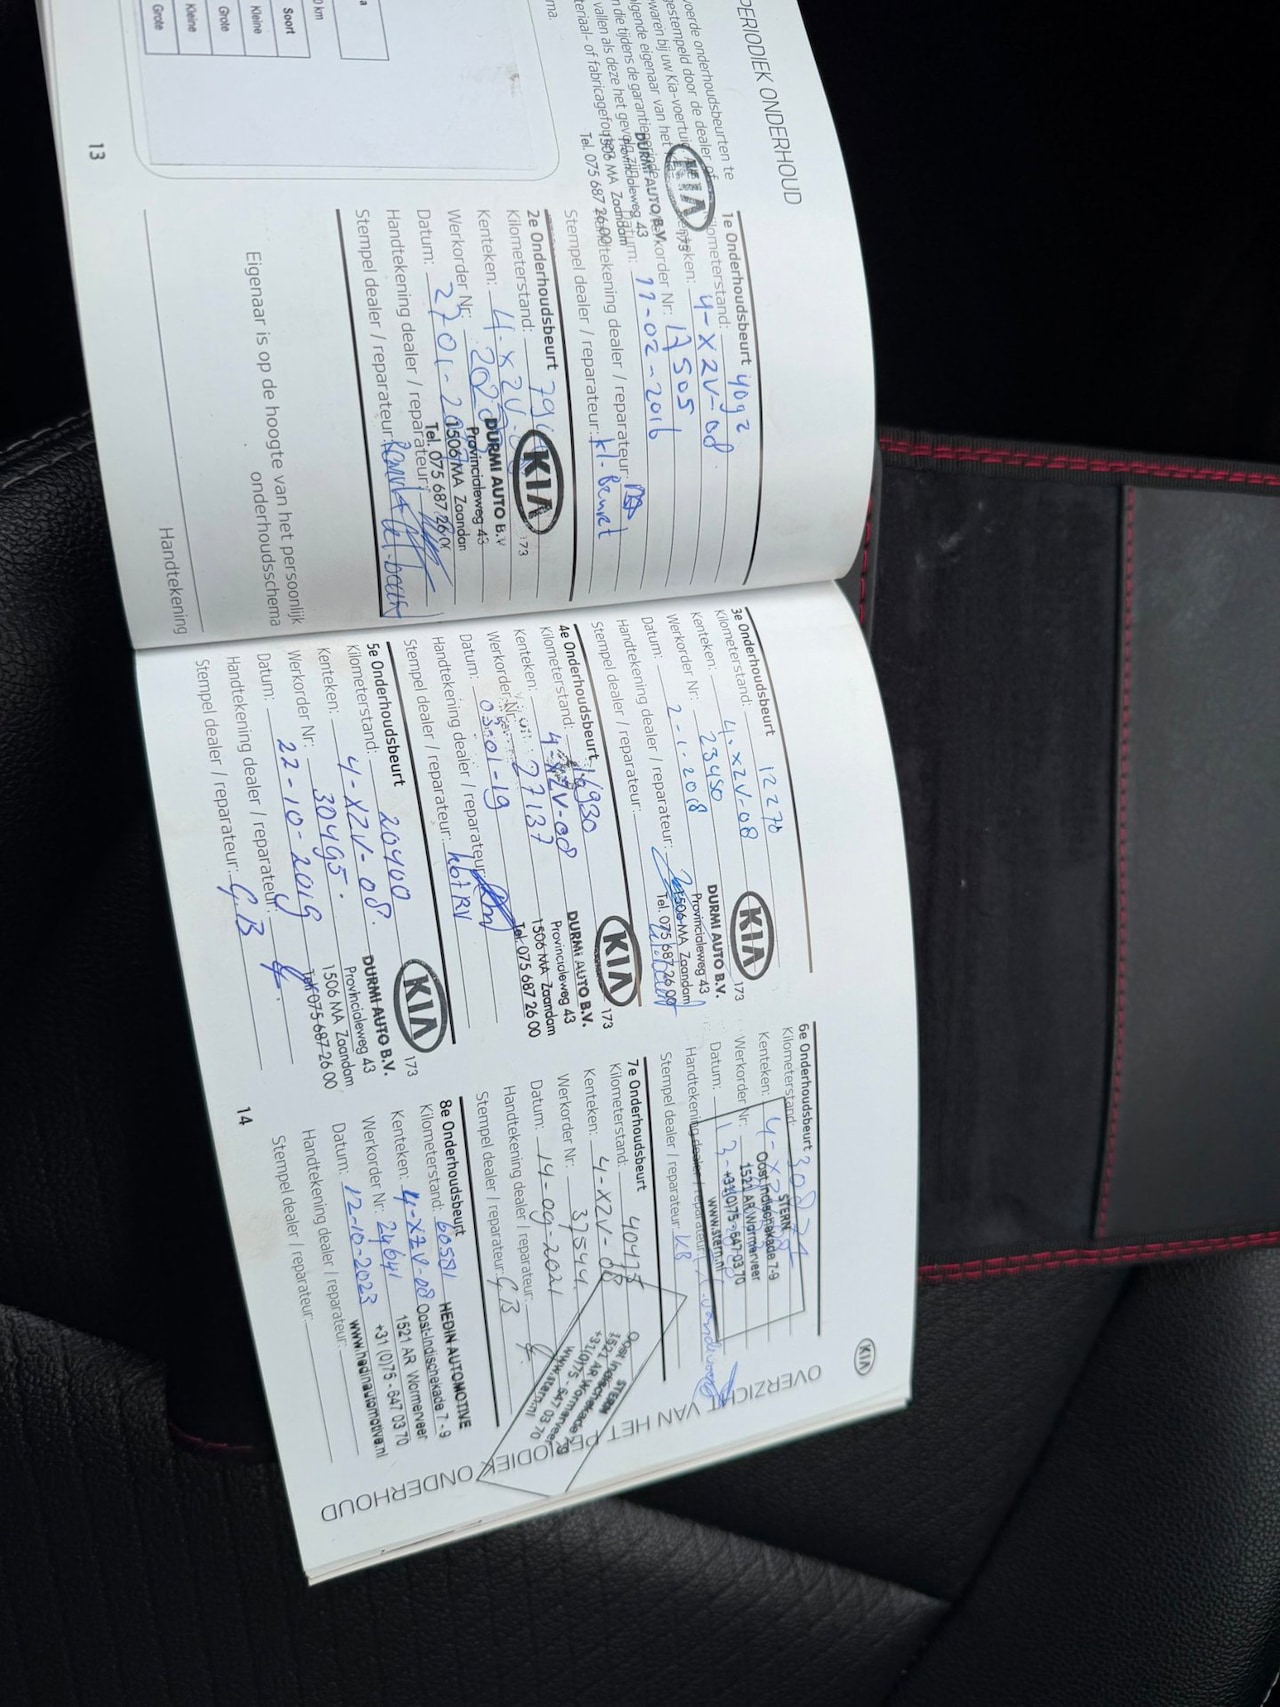 PERIODIEK ONDERHOUD
voerde onderhoudsbeurten te
gestempeld door de dealer of
waren bij uw Kia-voertuig
lgende eigenaar van het
n die tijdens de garantieperiode
vallen als deze het gevolg zijn
teriaal- of fabricagefou
ma.
0 km
Soort
Kleine
Grote
Kleine
Grote
13
1e Onderhoudsbeurt
Kilometerstand: 4092
Kenteken: 4-XZV-08
Werkorder Nr: 17505
Datum: 11-02-2016
Handtekening dealer / reparateur:
Stempel dealer / reparateur: kl-Beurt
KIA
173
DURMI AUTO B.V.
Provincialeweg 43
1506 MA Zaandam
Tel. 075 687 26 00
2e Onderhoudsbeurt
Kilometerstand:
Kenteken: 4-XZV
Werkorder Nr:
Datum: 27-01-20
Handtekening dealer / reparateur:
Stempel dealer / reparateur:
KIA
173
DURMI AUTO B.V.
Provincialeweg 43
1506 MA Zaandam
Tel. 075 687 26 00
Eigenaar is op de hoogte van het persoonlijk
onderhoudsschema
Handtekening
3e Onderhoudsbeurt
Kilometerstand: 12270
Kenteken: 4-XZV-08
Werkorder Nr: 23450
Datum: 2-1-2018
Handtekening dealer / reparateur:
Stempel dealer / reparateur:
KIA
173
DURMI AUTO B.V.
Provincialeweg 43
1506 MA Zaandam
Tel. 075 687 26 00
4e Onderhoudsbeurt
Kilometerstand: 16930
Kenteken: 4-XZV-08
Werkorder Nr: 27137
Datum: 03-01-19
Handtekening dealer / reparateur:
Stempel dealer / reparateur:
KIA
173
DURMI AUTO B.V.
Provincialeweg 43
1506 MA Zaandam
Tel. 075 687 26 00
5e Onderhoudsbeurt
Kilometerstand: 20400
Kenteken: 4-XZV-08.
Werkorder Nr: 30495.
Datum: 22-10-2019
Handtekening dealer / reparateur:
Stempel dealer / reparateur: G.B
KIA
173
DURMI AUTO B.V.
Provincialeweg 43
1506 MA Zaandam
Tel. 075 687 26 00
14
6e Onderhoudsbeurt
Kilometerstand:
Kenteken: 4-XZV-08
Werkorder Nr:
Datum:
Handtekening dealer / reparateur:
Stempel dealer / reparateur:
STERN
Oost Indischekade 7-9
1521 AR Wormerveer
+31(0)75 - 647 03 70
www.stern.nl
7e Onderhoudsbeurt
Kilometerstand: 40473
Kenteken: 4-XZV-08
Werkorder Nr: 37544
Datum: 14-09-2021
Handtekening dealer / reparateur:
Stempel dealer / reparateur: G.B
STERN
Oost Indischekade 7-9
1521 AR Wormerveer
+31(0)75 - 647 03 70
www.stern.nl
8e Onderhoudsbeurt
Kilometerstand: 60581
Kenteken: 4-XZV-08
Werkorder Nr: 24641
Datum: 12-10-2023
Handtekening dealer / reparateur:
Stempel dealer / reparateur:
HEDIN AUTOMOTIVE
Oost-Indischekade 7 - 9
1521 AR Wormerveer
+31 (0)75 - 647 03 70
www.hedinautomotive.nl
KIA
OVERZICHT VAN HET PERIODIEK ONDERHOUD